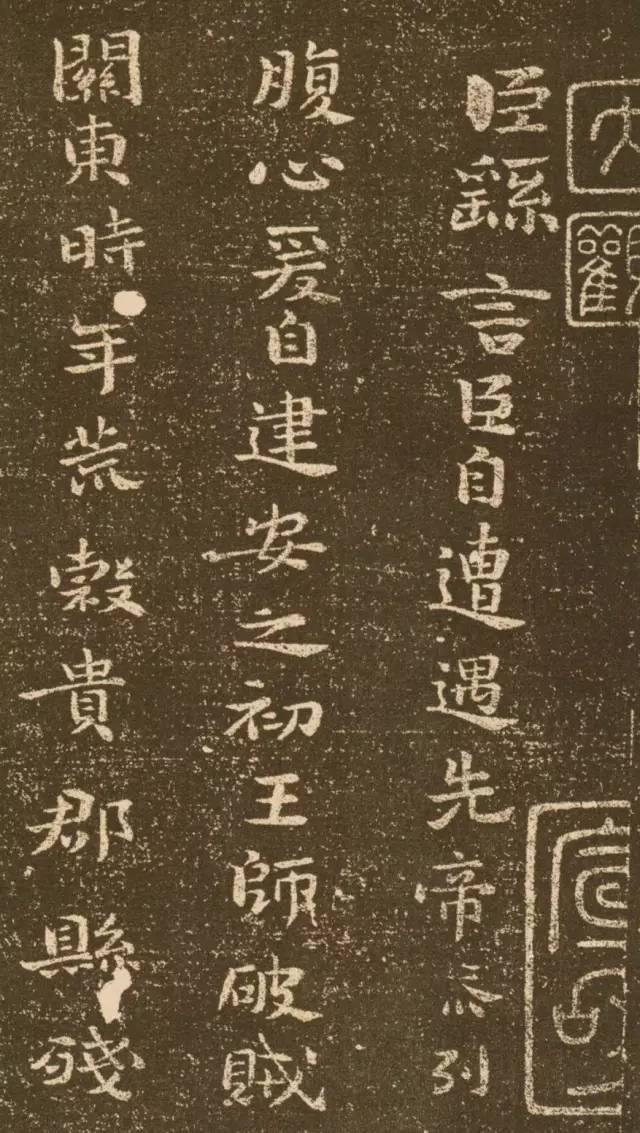 臣繇言臣自遭遇先帝忝列
腹心爰自建安之初王師破賊
關東時年荒穀貴郡縣殘
大觀